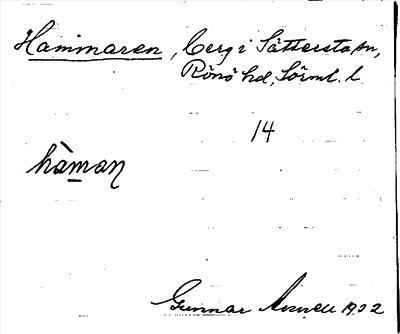 Hammaren, berg i Sättersta sn,
Rönö hd, Sörml. l.
14
hàman
Gunnar 1932